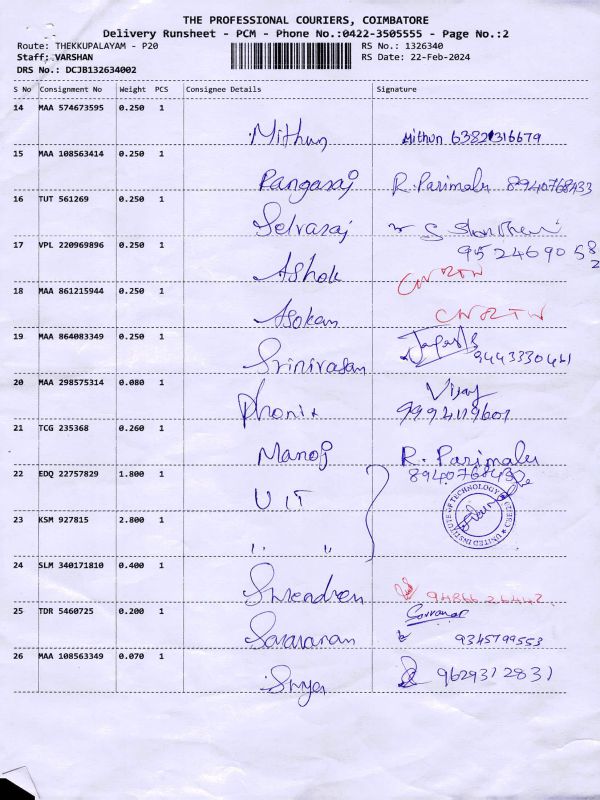 THE PROFESSIONAL COURIERS, COIMBATORE
Delivery Runsheet - PCM - Phone No.:0422-3505555 - Page No.:2
Route: THEKKUPALAYAM - P20 RS No.: 1326340
Staff: VARSHAN RS Date: 22-Feb-2024
DRS No.: DCJB132634002
S No Consignment No Weight PCS Consignee Details Signature
14 MAA 574673595 0.250 1
Mithun Mithun 6382316679
15 MAA 108563414 0.250 1
Rangaraj R. Parimalu 8940768433
16 TUT 561269 0.250 1
Selvaraj S
17 VPL 220969896 0.250 1
9524690582
Ashok
18 MAA 861215944 0.250 1
Asokan
19 MAA 864083349 0.250 1
Srinivasan 9443330461
20 MAA 298575314 0.080 1
Vijay
Phonix 9994119601
21 TCG 235368 0.260 1
Manoj R. Parimalu
22 EDQ 22757829 1.800 1
UIT
UNITED INSTITUTE OF TECHNOLOGY
23 KSM 927815 2.800 1
" "
24 SLM 340171810 0.400 1
Surendren 94866 26442
25 TDR 5460725 0.200 1
Saravanan 9345799553
26 MAA 108563349 0.070 1
9629372831